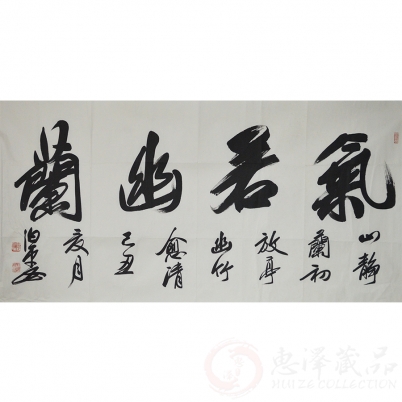 氣若幽蘭
山靜
蘭初
放亭
幽竹
愈清
己丑
夏月
惠泽藏品
HUIZE COLLECTION